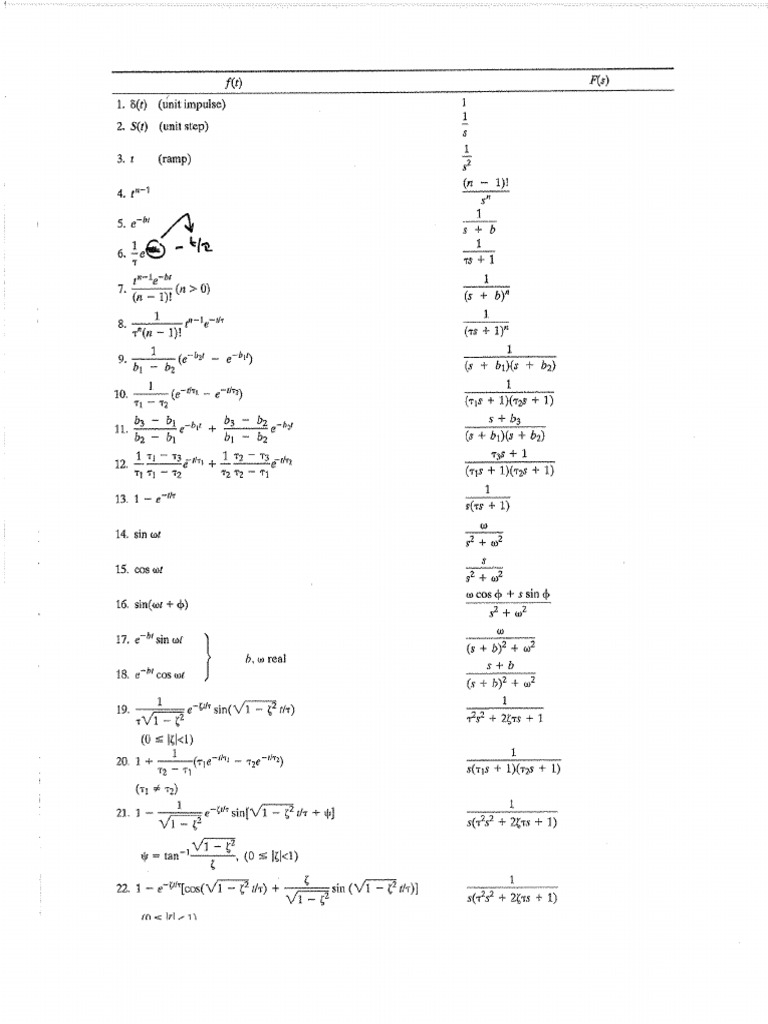 f(t) F(s)
1. δ(t) (unit impulse) 1
2. S(t) (unit step) 1/s
3. t (ramp) 1/s²
4. tⁿ⁻¹ (n − 1)!/sⁿ
5. e^(−bt) 1/(s + b)
6. (1/τ) e − t/τ 1/(τs + 1)
7. (tⁿ⁻¹e^(−bt))/((n − 1)!) (n > 0) 1/(s + b)ⁿ
8. 1/(τⁿ(n − 1)!) tⁿ⁻¹e^(−t/τ) 1/(τs + 1)ⁿ
9. 1/(b₁ − b₂) (e^(−b₂t) − e^(−b₁t)) 1/((s + b₁)(s + b₂))
10. 1/(τ₁ − τ₂) (e^(−t/τ₁) − e^(−t/τ₂)) 1/((τ₁s + 1)(τ₂s + 1))
11. (b₃ − b₁)/(b₂ − b₁) e^(−b₁t) + (b₃ − b₂)/(b₁ − b₂) e^(−b₂t) (s + b₃)/((s + b₁)(s + b₂))
12. (1/τ₁) (τ₁ − τ₃)/(τ₁ − τ₂) e^(−t/τ₁) + (1/τ₂) (τ₂ − τ₃)/(τ₂ − τ₁) e^(−t/τ₂) (τ₃s + 1)/((τ₁s + 1)(τ₂s + 1))
13. 1 − e^(−t/τ) 1/(s(τs + 1))
14. sin ωt ω/(s² + ω²)
15. cos ωt s/(s² + ω²)
16. sin(ωt + ϕ) (ω cos ϕ + s sin ϕ)/(s² + ω²)
17. e^(−bt) sin ωt ω/((s + b)² + ω²)
b, ω real
18. e^(−bt) cos ωt (s + b)/((s + b)² + ω²)
19. 1/(τ√(1 − ζ²)) e^(−ζt/τ) sin(√(1 − ζ²) t/τ) 1/(τ²s² + 2ζτs + 1)
(0 ≤ |ζ|<1)
20. 1 + 1/(τ₂ − τ₁) (τ₁e^(−t/τ₁) − τ₂e^(−t/τ₂)) 1/(s(τ₁s + 1)(τ₂s + 1))
(τ₁ ≠ τ₂)
21. 1 − 1/√(1 − ζ²) e^(−ζt/τ) sin[√(1 − ζ²) t/τ + ψ] 1/(s(τ²s² + 2ζτs + 1))
ψ = tan⁻¹ √(1 − ζ²)/ζ, (0 ≤ |ζ|<1)
22. 1 − e^(−ζt/τ)[cos(√(1 − ζ²) t/τ) + ζ/√(1 − ζ²) sin (√(1 − ζ²) t/τ)] 1/(s(τ²s² + 2ζτs + 1))